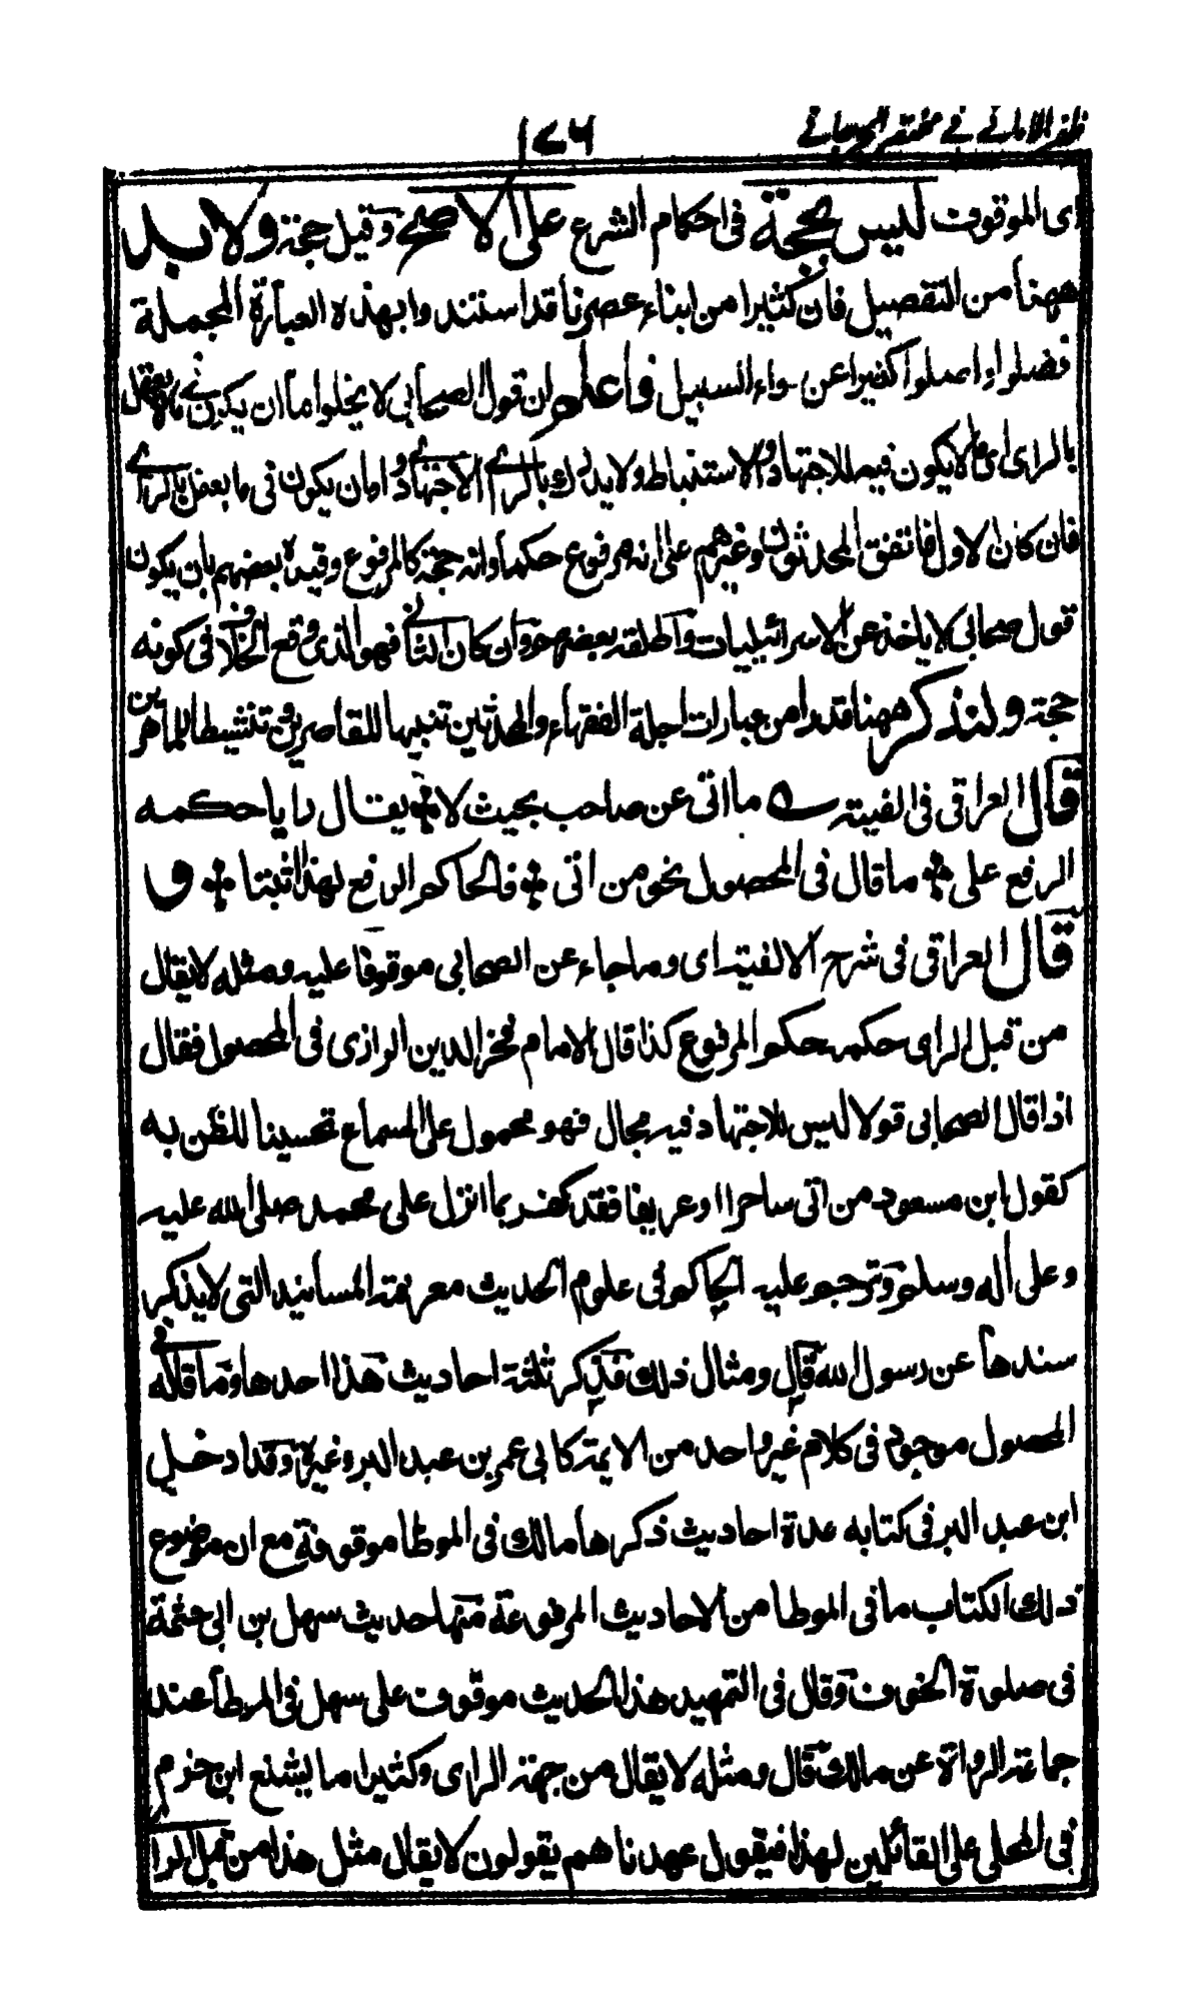 ظفر الامانى فى مختصر الجرجانى ١٧٦
اى الموقوف ليس بحجة فى احكام الشرع على الاصح وقيل حجة ولا بد
ههنا من التفصيل فان كثيرا من ابناء عصرنا قد استندوا بهذه العبارة المجملة
فضلوا واضلوا كثيرا عن سواء السبيل واعلم ان قول الصحابى لا يخلوا اما ان يكون فى ما لا يعقل
بالراى اى ما لا يكون فيه للاجتهاد والاستنباط ولا يدرك بالراى والاجتهاد واما ان يكون فى ما يعقل بالراى
فان كان الاول فاتفق المحدثون وغيرهم على انه مرفوع حكما وانه حجة كالمرفوع وقيده بعضهم بان يكون
قول صحابى لا ياخذ عن الاسرائيليات واطلقه بعضهم وان كان الثانى فهو الذى وقع الخلاف فى كونه
حجة ولنذكر ههنا قدرا من عبارات اجلة الفقهاء والمحدثين تنبيها للقاصرين وتنشيطا للماهرين
قال العراقى فى الفيته ما اتى عن صاحب بحيث لا يقال رايا حكمه
الرفع على ما قال فى المحصول نحو من اتى فالحاكم الرفع لهذا اثبتا و
قال العراقى فى شرح الالفية اى وما جاء عن الصحابى موقوفا عليه ومثله لا يقال
من قبل الراى حكمه حكم المرفوع كذا قال الامام فخر الدين الرازى فى المحصول فقال
اذا قال الصحابى قولا ليس للاجتهاد فيه مجال فهو محمول على السماع تحسينا للظن به
كقول ابن مسعود من اتى ساحرا او عريفا فقد كفر بما انزل على محمد صلى الله عليه
وعلى آله وسلم وترجم عليه الحاكم فى علوم الحديث معرفة المسانيد التى لا يذكر
سندها عن رسول الله قال ومثال ذلك فذكر ثلثة احاديث هذا احدها وما قاله فى
المحصول موجود فى كلام غير واحد من الايمة كابى عمر بن عبد البر وغيره وقد ادخل
ابن عبد البر فى كتابه عدة احاديث ذكرها مالك فى الموطا موقوفة مع ان موضوع
ذلك الكتاب ما فى الموطا من الاحاديث المرفوعة منها حديث سهل بن ابى حثمة
فى صلوة الخوف وقال فى التمهيد هذا الحديث موقوف على سهل فى الموطا عند
جماعة الرواة عن مالك قال ومثله لا يقال من جهة الراى وكثيرا ما يشنع ابن حزم
فى المحلى على القائلين لهذا فيقول عهدناهم يقولون لا يقال مثل هذا من قبل الراى